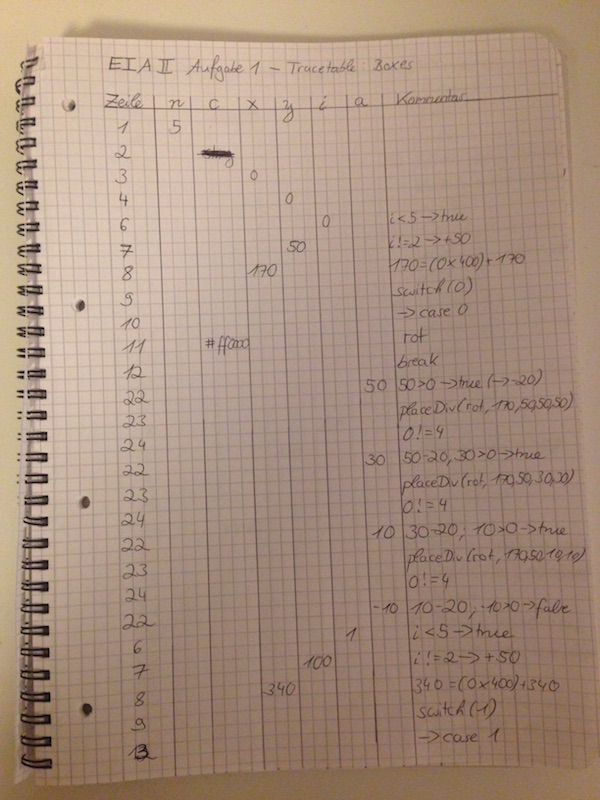 EIA II Aufgabe 1 - Tracetable: Boxes
Zeile n c x y i a Kommentar
1 5
2
3 0
4 0
6 0 i<5 → true
7 50 i!=2 → +50
8 170 170=(0x400)+170
9 switch(0)
10 → case 0
11 #ff0000 rot
12 break
22 50 50>0 → true (→-20)
23 placeDiv(rot, 170,50,50,50)
24 0!=4
22 30 50-20, 30>0 → true
23 placeDiv(rot, 170,50,30,30)
24 0!=4
22 10 30-20, 10>0 → true
23 placeDiv(rot, 170,50,10,10)
24 0!=4
22 -10 10-20, -10>0 → false
6 1 i<5 → true
7 100 i!=2 → +50
8 340 340=(0x400)+340
9 switch(1)
13 → case 1